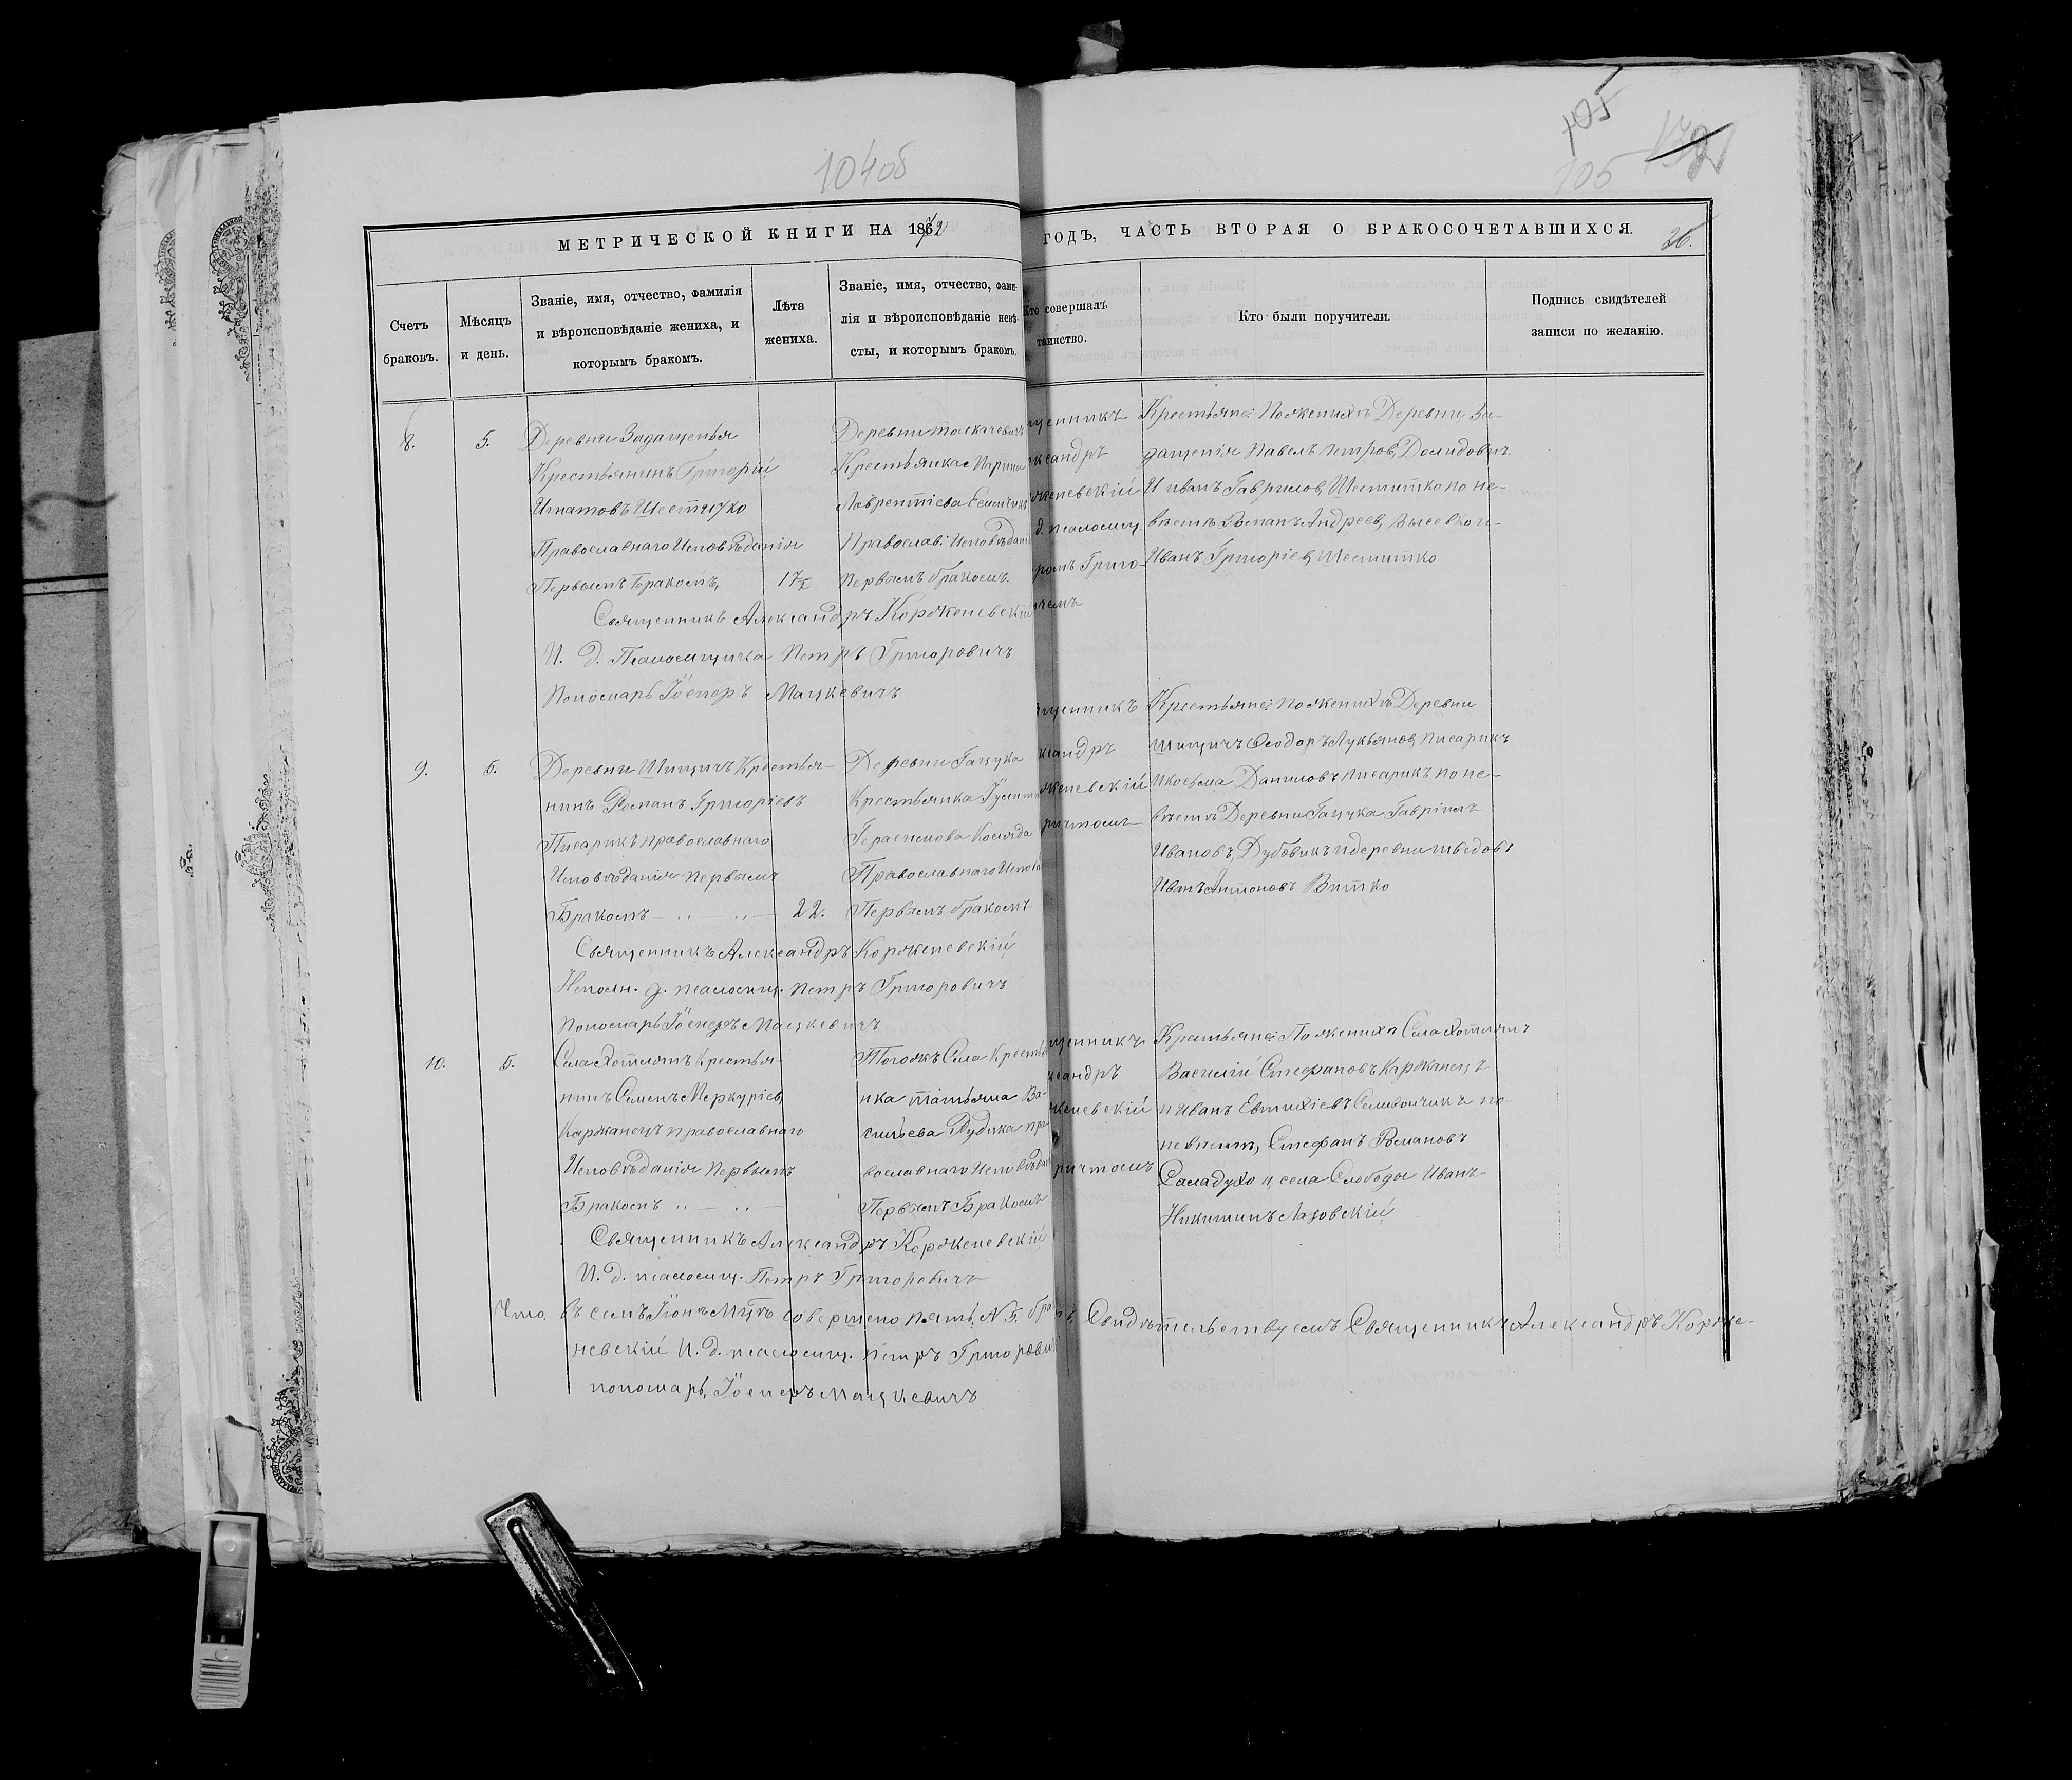 104об
105
105
172
МЕТРИЧЕСКОЙ КНИГИ НА 1872 ГОДЪ, ЧАСТЬ ВТОРАЯ О БРАКОСОЧЕТАВШИХСЯ.
26.
Счетъ браковъ.
Мѣсяцъ и день.
Званіе, имя, отчество, фамилія
и вѣроисповѣданіе жениха, и
которымъ бракомъ.
Лѣта
жениха.
Званіе, имя, отчество, фами-
лія и вѣроисповѣданіе невѣ-
сты, и которымъ бракомъ.
Кто совершалъ
таинство.
Кто были поручители.
Подпись свидѣтелей
записи по желанію.
8.
5.
Деревни Задащенья
Крестьянинъ Григорій
Игнатовъ Шеститко
Православнаго Исповѣданія
Первымъ бракомъ,
17½
Деревни
Крестьянка Марина
Лаврентіева
Православ: Исповѣдані
Первымъ бракомъ.
щенникъ
ксандръ
женевскій
д. псаломщ.
ромъ Григо-
чемъ
Крестьяне: По женихѣ Деревни За-
дащенія Павелъ Петровъ Домидовичъ
И иванъ Гавриловъ Шеститко по не-
вѣстѣ Романъ Андреевъ
Иванъ Григоріевъ Шеститко
Священникъ Александръ Корженевскій
И. д. Псаломщика Петръ Григоровичъ
Пономарь Іосифъ Мацкевичъ
9.
5.
Деревни Шищичъ Крестья-
нинъ Романъ Григоріевъ
Писарикъ православнаго
Исповѣданія первымъ
Бракомъ
22.
Деревни Гацука
Крестьянка
Герасимова Коляда
Православнаго Испов
Первымъ бракомъ
щенникъ
ксандръ
женевскій
ричтомъ
Крестьяне: По женихѣ Деревни
Шищичъ Ѳеодоръ Лукьяновъ Писарикъ
Икосьма Даниловъ Писарикъ по не-
вѣстѣ Деревни Гацука Гавріилъ
Ивановъ Дубовикъ и деревни
Иванъ Антоновъ Витко
Священникъ Александръ Корженевскій
Исполн. д. псаломщ. Петръ Григоровичъ
Пономарь Іосифъ Мацкевичъ
10.
5.
Села Хотлянъ Крестья-
нинъ Семенъ Меркуріевъ
Каржанецъ православнаго
Исповѣданія первымъ
Бракомъ
Тогожъ Села Крестья
нка татьяна Ва-
сильева Рудька пра
вославнаго Исповѣдан
Первымъ Бракомъ
щенникъ
ксандръ
женевскій
ричтомъ
Крестьяне: По женихѣ Села Хотлянъ
Василій Стефановъ Каржанецъ
и Иванъ Евтихіевъ Селивончикъ по-
невѣстѣ, Стефанъ Романовъ
Саладуха и села Слободы Иванъ
Никитинъ Лазовскій
Священникъ Александръ Корженевскій
И. д. псаломщ. Петръ Григоровичъ
Что въ семъ Іюнѣ Мцѣ совершено пять, N 5. бра въ, Свидѣтельствуемъ Священникъ Александръ Корже-
невскій И. д. псаломщ. Петръ Григорови
пономарь, Іосифъ Мацкевичъ